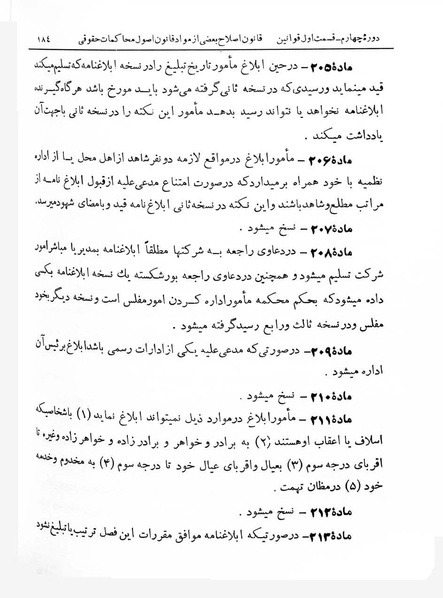 دورهٔ چهارم - قسمت اول قوانین قانون اصلاح بعضی از مواد قانون اصول محاکمات حقوقی ۱۸٤
مادهٔ ۲۰۵ - در حین ابلاغ مأمور تاریخ تبلیغ را در نسخه ابلاغنامه که تسلیم میکند
قید مینماید و رسیدی که در نسخه ثانی گرفته میشود باید مورخ باشد هر گاه گیرنده
ابلاغنامه نخواهد یا نتواند رسید بدهد مأمور این نکته را در نسخه ثانی با جهت آن
یادداشت میکند .
مادهٔ ۲۰۶ - مأمور ابلاغ در مواقع لازمه دو نفر شاهد از اهل محل یا از اداره
نظمیه با خود همراه برمیدارد که در صورت امتناع مدعی علیه از قبول ابلاغ نامه از
مراتب مطلع و شاهد باشند و این نکته در نسخه ثانی ابلاغ نامه قید و بامضای شهود میرسد.
مادهٔ ۲۰۷ - نسخ میشود .
مادهٔ ۲۰۸ - در دعاوی راجعه به شرکتها مطلقاً ابلاغنامه بمدیر یا مباشر امور
شرکت تسلیم میشود و همچنین در دعاوی راجعه بورشکسته یك نسخه ابلاغنامه بکسی
داده میشود که بحکم محکمه مأمور اداره کردن امور مفلس است و نسخه دیگر بخود
مفلس و در نسخه ثالث و رابع رسید گرفته میشود .
مادهٔ ۲۰۹ - در صورتی که مدعی علیه یکی از ادارات رسمی باشد ابلاغ برئیس آن
اداره میشود .
مادهٔ ۲۱۰ - نسخ میشود .
مادهٔ ۲۱۱ - مأمور ابلاغ در موارد ذیل نمیتواند ابلاغ نماید (۱) باشخاصیکه
اسلاف یا اعقاب او هستند (۲) به برادر و خواهر و برادر زاده و خواهر زاده وغیره تا
اقربای درجه سوم (۳) بعیال و اقربای عیال خود تا درجه سوم (٤) به مخدوم و خدمه
خود (۵) در مظان تهمت .
مادهٔ ۲۱۲ - نسخ میشود .
مادهٔ ۲۱۳ - در صورتیکه ابلاغنامه موافق مقررات این فصل ترتیب یا تبلیغ نشود